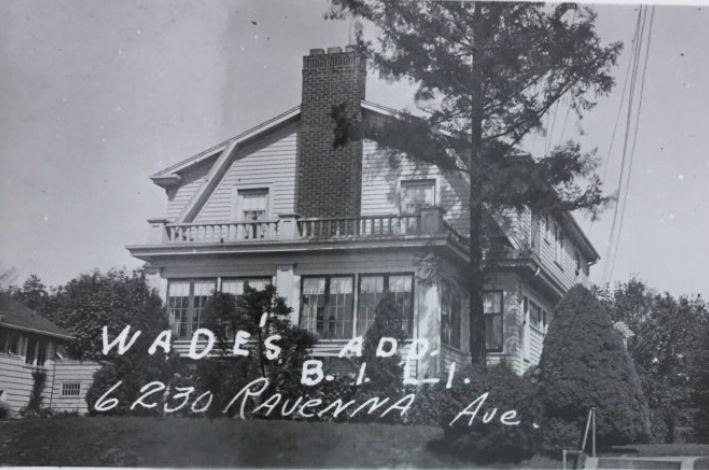 WADE'S ADD.
B. 1. L 1.
6230 RAVENNA Ave.